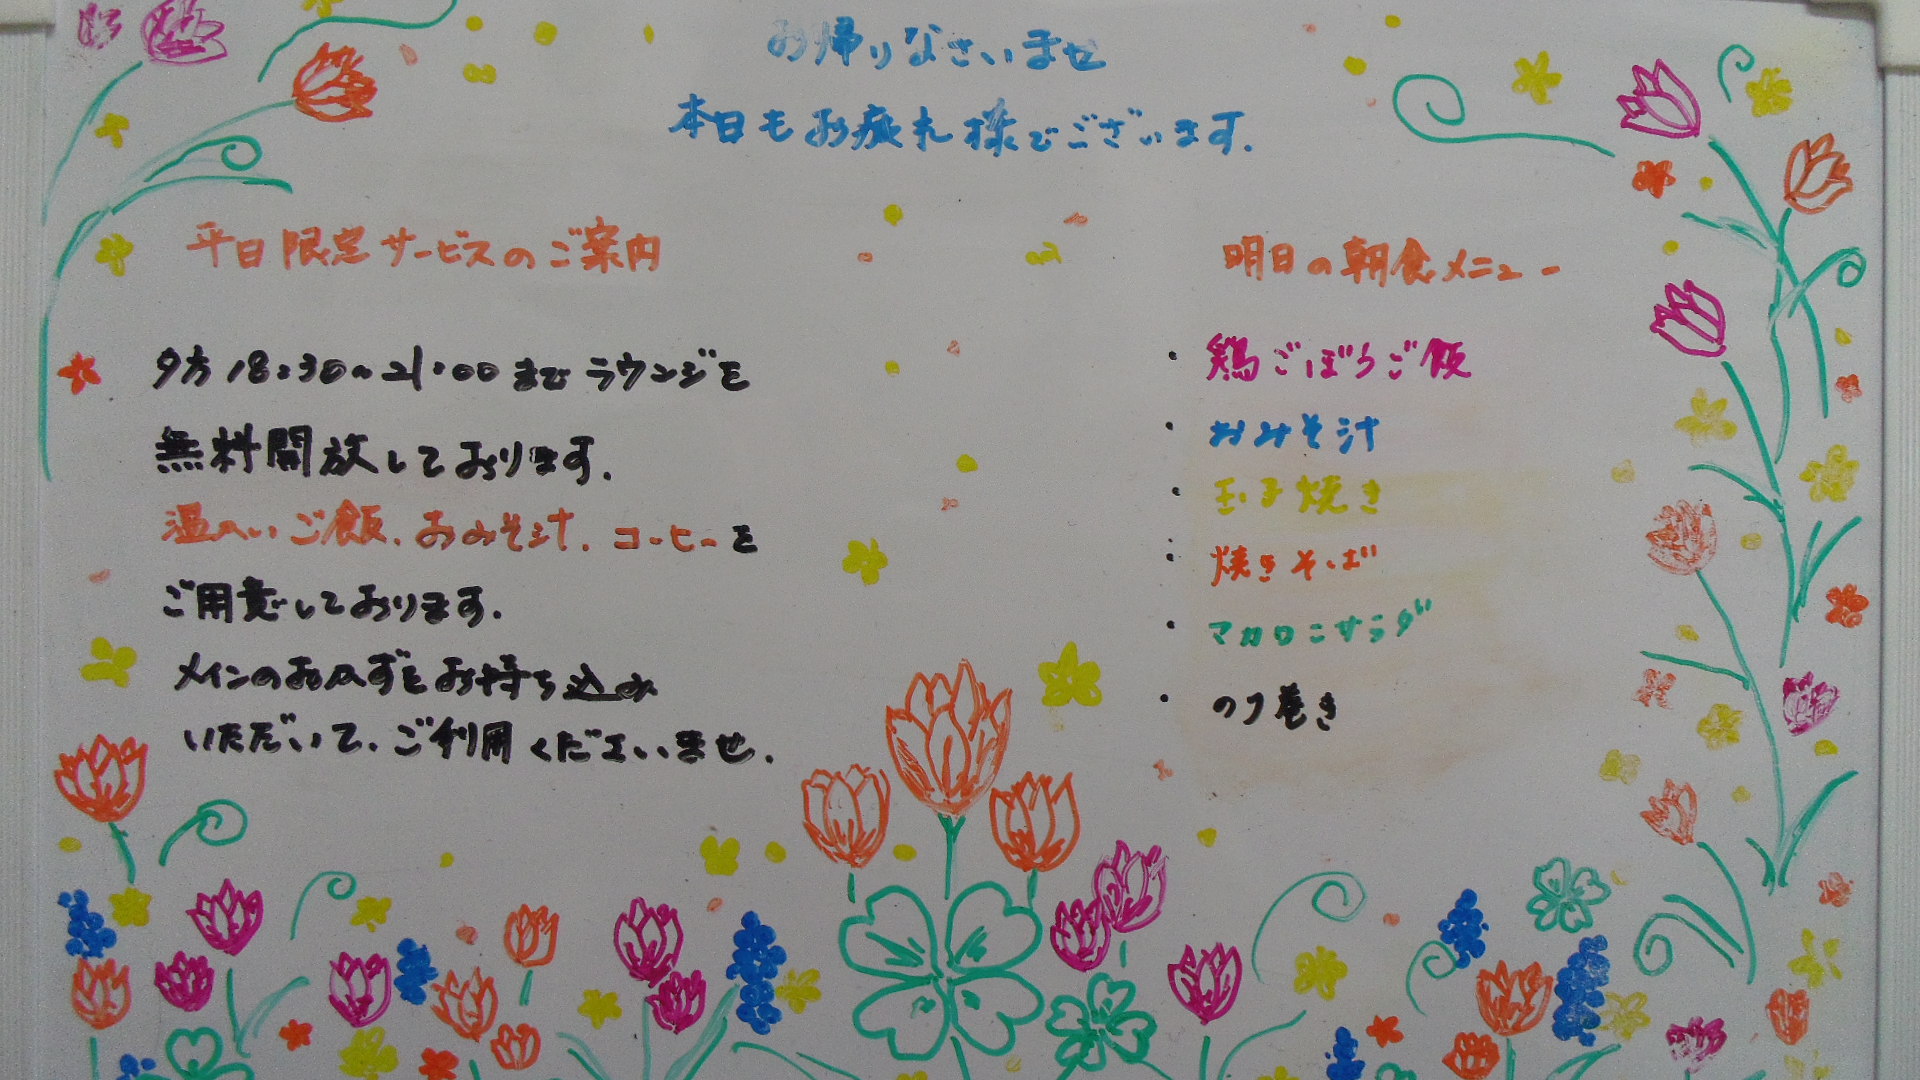 お帰りなさいませ
本日もお疲れ様でございます.
平日限定サービスのご案内
夕方18:30~21:00までラウンジを
無料開放しております.
温かいご飯.おみそ汁.コーヒーを
ご用意しております.
メインのおかずをお持ち込み
いただいて、ご利用くださいませ.
明日の朝食メニュー
・鶏ごぼうご飯
・おみそ汁
・玉子焼き
・焼きそば
・マカロニサラダ
・のり巻き